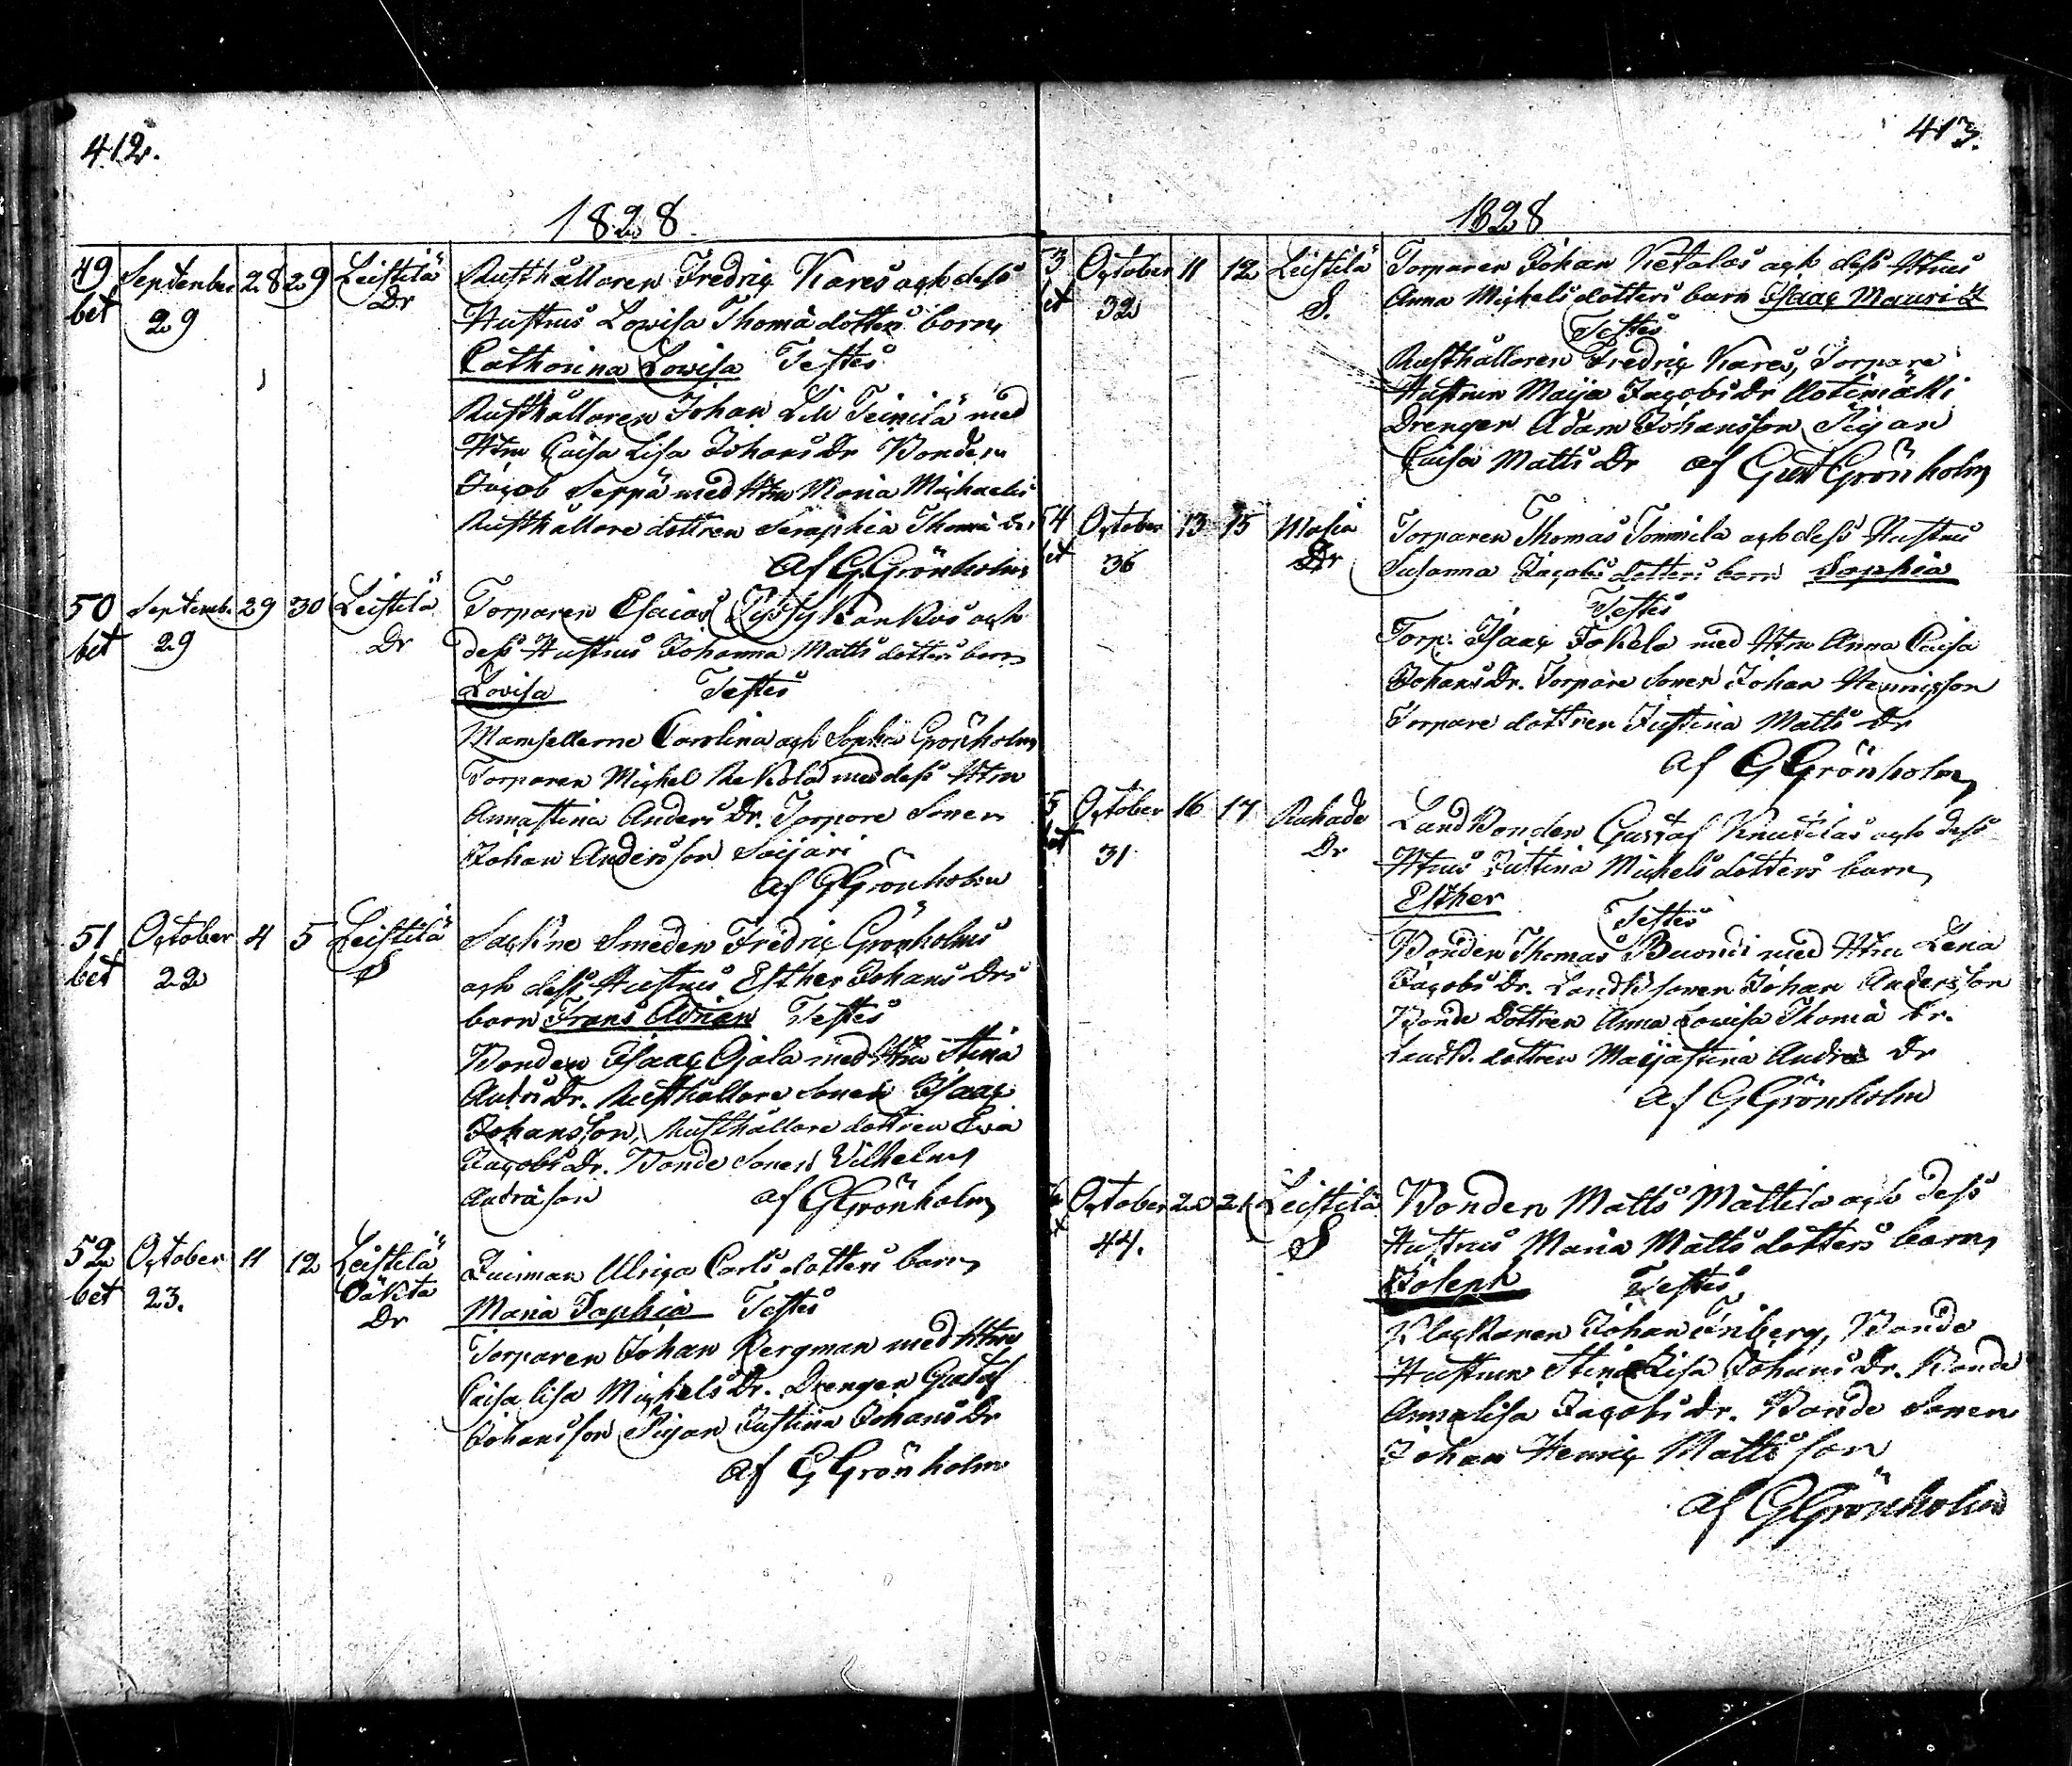 412.
1828.
49 September 28 29 Leistilä Rusthållaren Fredric Kares och dess
bet 29 Dr Hustrus Lowisa Thomædotters barn
Catharina Lowisa Testes
Rusthållaren Johan Lill Teinilä med
Htru Caisa Lisa Johans Dr Bonden
Jacob Seppä med Htru Maria Michaels
Rusthållare dottren Seraphia Thomæ Dr
af G. Grönholm
50 Septemb. 29 30 Leistilä Torparen Esaias och
bet 29 Dr dess Hustrus Johanna Matts dotters barn
Lovisa Testes
Mamsellerne Carolina och Sophia Grönholm
Torparen Michel Rekola med dess Htru
Annastina Anders Dr. Torpare Sonen
Johan Andersson Saijari
af G Grönholm
51 October 4 5 Leistilä Sockne Smeden Fredric Grönholms
bet 22 S och dess Hustrus Esther Johans Drs
barn Frans Adrian Testes
Bonden Isaac Ojala med Htru Stina
Anders Dr. Rusthållare Sonen Isaac
Johansson, Rusthållare dottren Eva
Jacobs Dr. Bonde Sonen Vilhelm
Andræson af G Grönholm
52 October 11 12 Leistilä Quinnan Ulrica Carls dotters barn
bet 23. Oäkta Maria Sophia Testes
Dr Torparen Johan Bergman med Htru
Caisa Lisa Michels Dr. Drengen Gustaf
Johansson Pigan Justina Johans Dr
af G Grönholm
413.
1828
3 October 11 12 Leistilä Torparen Johan Ketolas och dess Htrus
bet 32 S. Anna Michels dotters barn Isaac Maurits
Testes
Rusthållaren Fredric Kares, Torpare
Hustrun Maija Jacobs Dr Kotimäki
Drengen Adam Johansson Pigan
Caisa Matts Dr af Gust Grönholm
54 October 13 15 Masia Torparen Thomas Tommila och dess Hustrus
bet 36 Dr Susanna Jacobs dotters barn Sophia
Testes
Torp. Isaac Jokela med Htru Anna Caisa
Johans Dr. Torpare Sonen Johan Henricsson
Torpare dottren Justina Matts Dr
af G Grönholm
5 October 16 17 Ruhade Landbonden Gustaf Knuutilas och dess
bet 31 Dr Htrus Justina Michels dotters barn
Esther
Testes
Bonden Thomas Buondi med Htru Lena
Jacobs Dr. Landb sonen Johan Andersson
Bonde Dottren Anna Lowisa Thomæ Dr.
Landb. dottren Maijastina Andræ Dr
af G Grönholm
October 20 21 Leistilä Bonden Matts Mattila och dess
44. S Hustrus Maria Matts dotters barn
Joseph Testes
Klockaren Johan Enberg, Bonde
Hustrun Stina Lisa Johans Dr. Bonde
Annalisa Jacobs Dr. Bonde Sonen
Johan Henric Mattsson
af G Grönholm